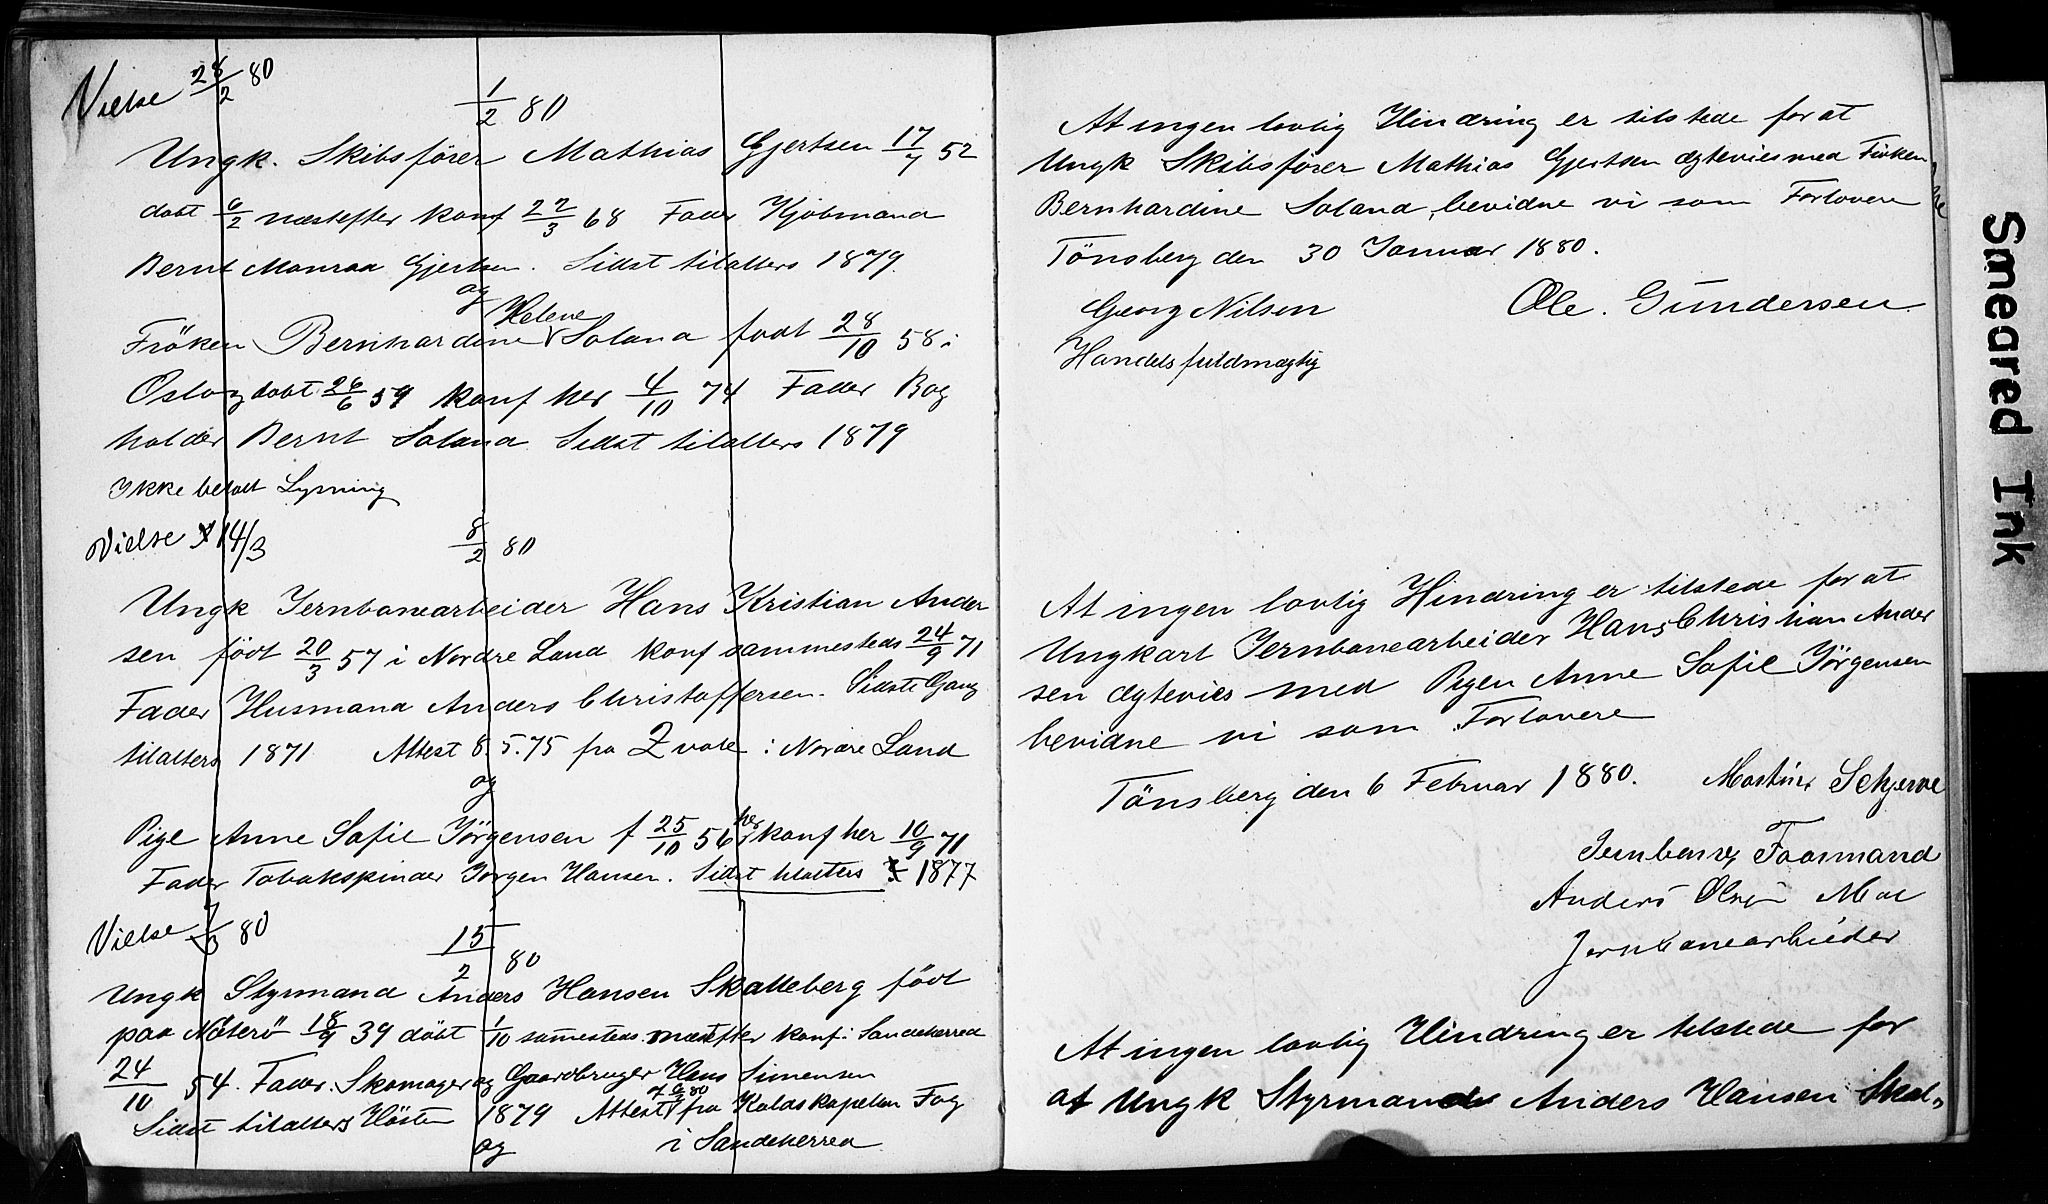 Vielse 28/2 80
1/2 80
Ungk. Skibsförer Mathias Gjertsen 17/7 52
döbt 6/2 næstefter konf 22/3 68 Fader Kjöbmand
Bernt Monrad Gjertsen. Sidst tilalters 1879.
og
Helene
Fröken Bernhardine Soland födt 28/10 58 i
Oslo og döbt 26/6 59 konf her 4/10 74 Fader Bog
holder Bernt Soland Sidst tilalters 1879
Ikke betalt Lysning
Vielse 14/3
8/2 80
Ungk Jernbanearbeider Hans Kristian Ander
sen födt 20/3 57 i Nordre Land konf sammesteds 24/9 71
Fader Husmand Anders Christoffersen. Sidste Gang
tilalters 1871 Attest 8.5.75 fra Zwole i Nordre Land
og
Pige Anne Sofie Jörgensen f 25/10 56 her konf her 10/9 71
Fader Tobakspinder Jörgen Hansen. Sidst tilalters 1877
Vielse 7/3 80
15/2 80
Ungk Styrmand Anders Hansen Skalleberg födt
paa Nöterö 18/9 39 döbt 1/10 sam̄esteds næstefter konf i Sandeherred
24/10 54. Fader. Skomager og Gaardbruger Hans Simensen
Sidst tilalters Hösten 1879 Attest af 6/2 80 fra Kaldskapellan Fog
og i Sandeherred
At ingen lovlig Hindring er tilstede for at
Ungk Skibsförer Mathias Gjertsen ægtevies med Fröken
Bernhardine Soland, bevidne vi som Forlovere
Tönsberg den 30 Januar 1880.
Georg Nilsen Ole. Gundersen
Handelsfuldmægtig
At ingen lovlig Hindring er tilstede for at
Ungkarl Jernbanearbeider Hans Christian Ander
sen ægtevies med Pigen Anne Sofie Jörgensen
bevidne vi som Forlovere
Tönsberg den 6 Februar 1880. Martin Schjerve
Jernbane Foormand
Anders Olsen Moe
Jernbanearbeider
At ingen lovlig Hindring er tilstede for
at Ungk Styrmand Anders Hansen Skal-
Smeared Ink